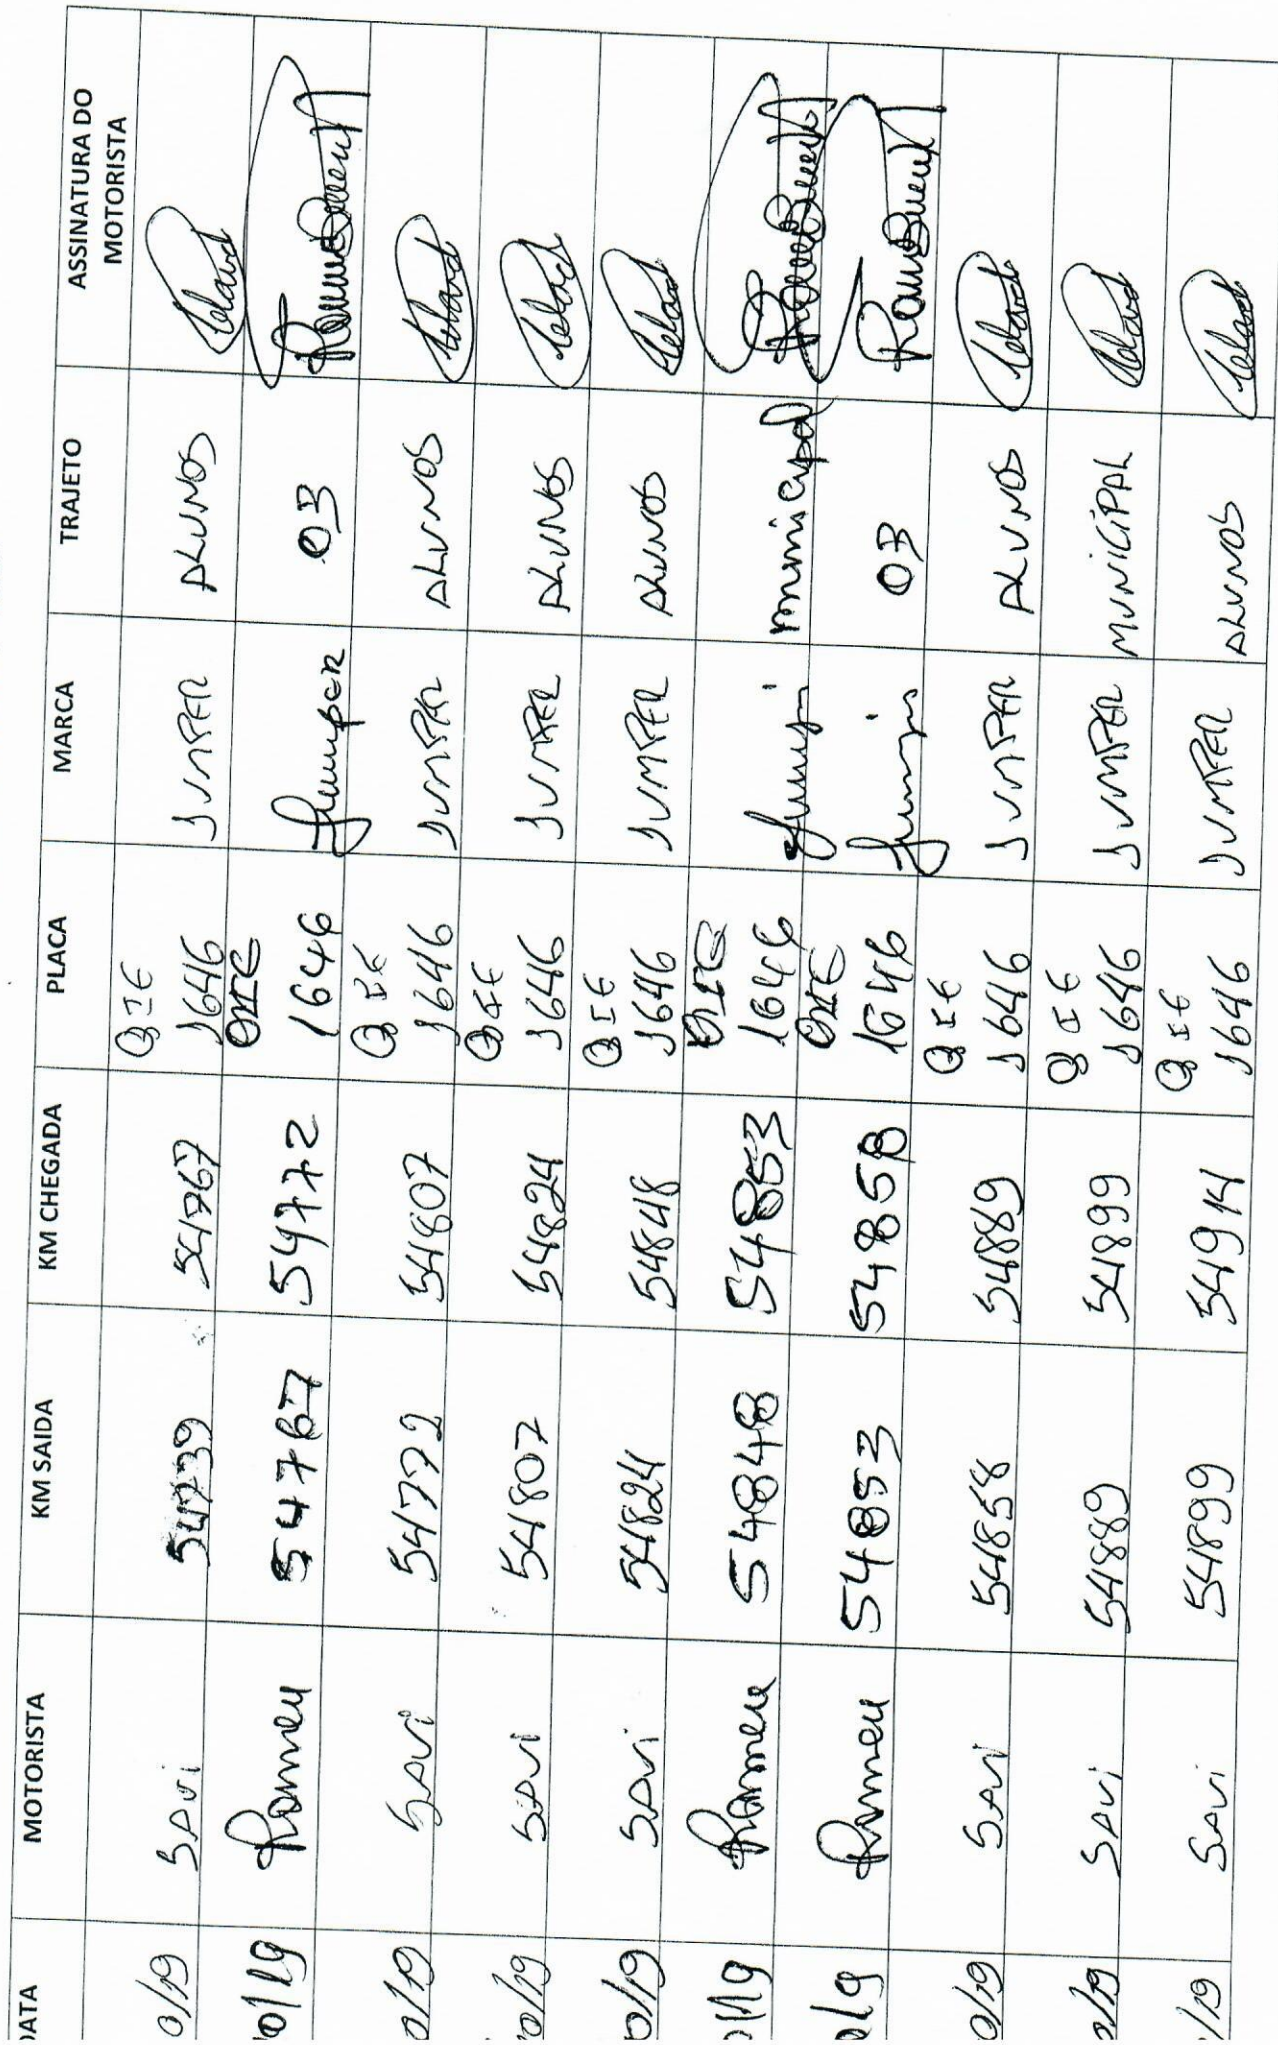 DATA MOTORISTA KM SAIDA KM CHEGADA PLACA MARCA TRAJETO ASSINATURA DO MOTORISTA
0/19 SAVi 54739 54767 QIE 1646 JUMPER ALUNOS
0/19 Romeu 54767 54772 QIE 1646 Jumper 03
0/19 SAVi 54772 54807 QIE 1646 JUMPER ALUNOS
0/19 SAVi 54807 54824 QIE 1646 JUMPER ALUNOS
0/19 SAVi 54824 54848 QIE 1646 JUMPER ALUNOS
0/19 Romeu 54848 54853 QIE 1646 municipal
0/19 Romeu 54853 54858 QIE 1646 03
0/19 SAVi 54858 54889 QIE 1646 JUMPER ALUNOS
0/19 SAVi 54889 54899 QIE 1646 JUMPER MUNICIPAL
/19 SAVi 54899 54914 QIE 1646 JUMPER ALUNOS